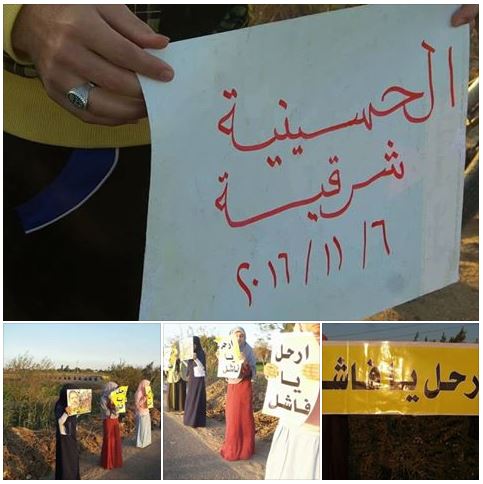 الحسينية
شرقية
٢٠١٦/١١/٦
ارحل
يا
فاشل
ارحل
يا
فاشل
ارحل يا فاش